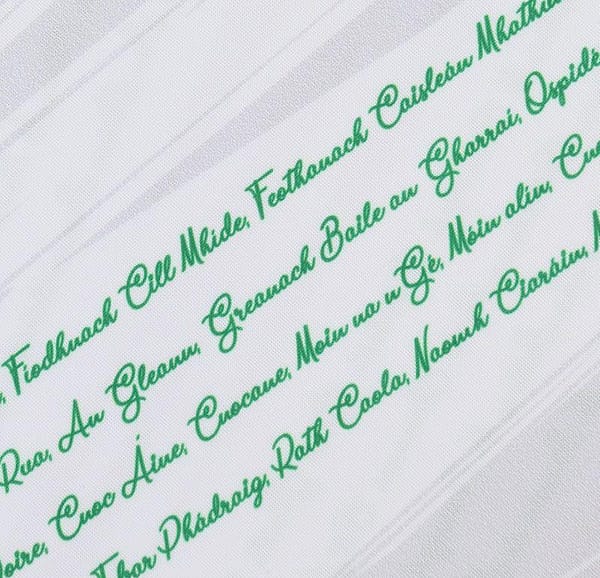 Fíodhnach Cill Mhíde, Feothanach Caisleán
Rua, An Gleann, Greanach Baile an Gharraí,
Cnoc Áine, Cnocane, Móin na n Gé, Móin alín,
Phádraig, Rath Caola, Naomh Ciaráin,